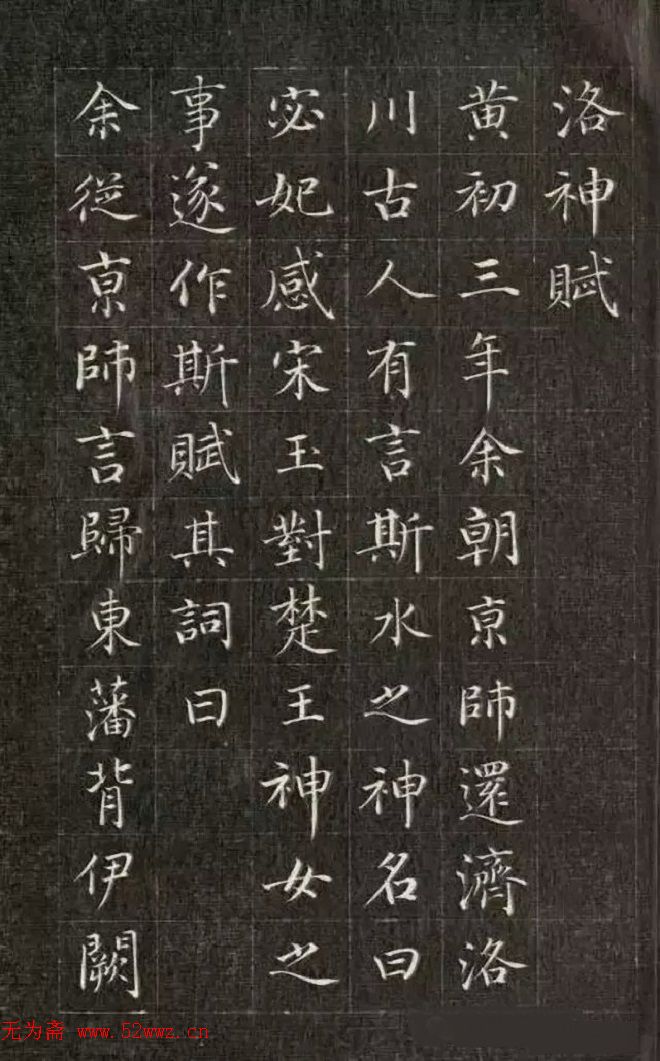 洛神賦
黄初三年余朝京師還濟洛
川古人有言斯水之神名曰
宓妃感宋玉對楚王神女之
事遂作斯賦其詞曰
余從京師言歸東藩背伊闕
无为斋 www.52wwz.cn